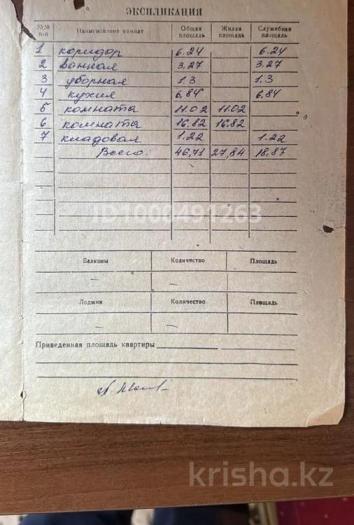 ЭКСПЛИКАЦИЯ
№№ Наименование комнат Общая площадь Жилая площадь Служебная площадь
1 коридор 6.24 6.24
2 ванная 3.27 3.27
3 уборная 1.3 1.3
4 кухня 6.84 6.84
5 комната 11.02 11.02
6 комната 16.82 16.82
7 кладовая 1.22 1.22
Всего: 46,71 27,84 18,87
ID1000491263
Балконы Количество Площадь
— —
Лоджии Количество Площадь
— —
Приведенная площадь квартиры
krisha.kz